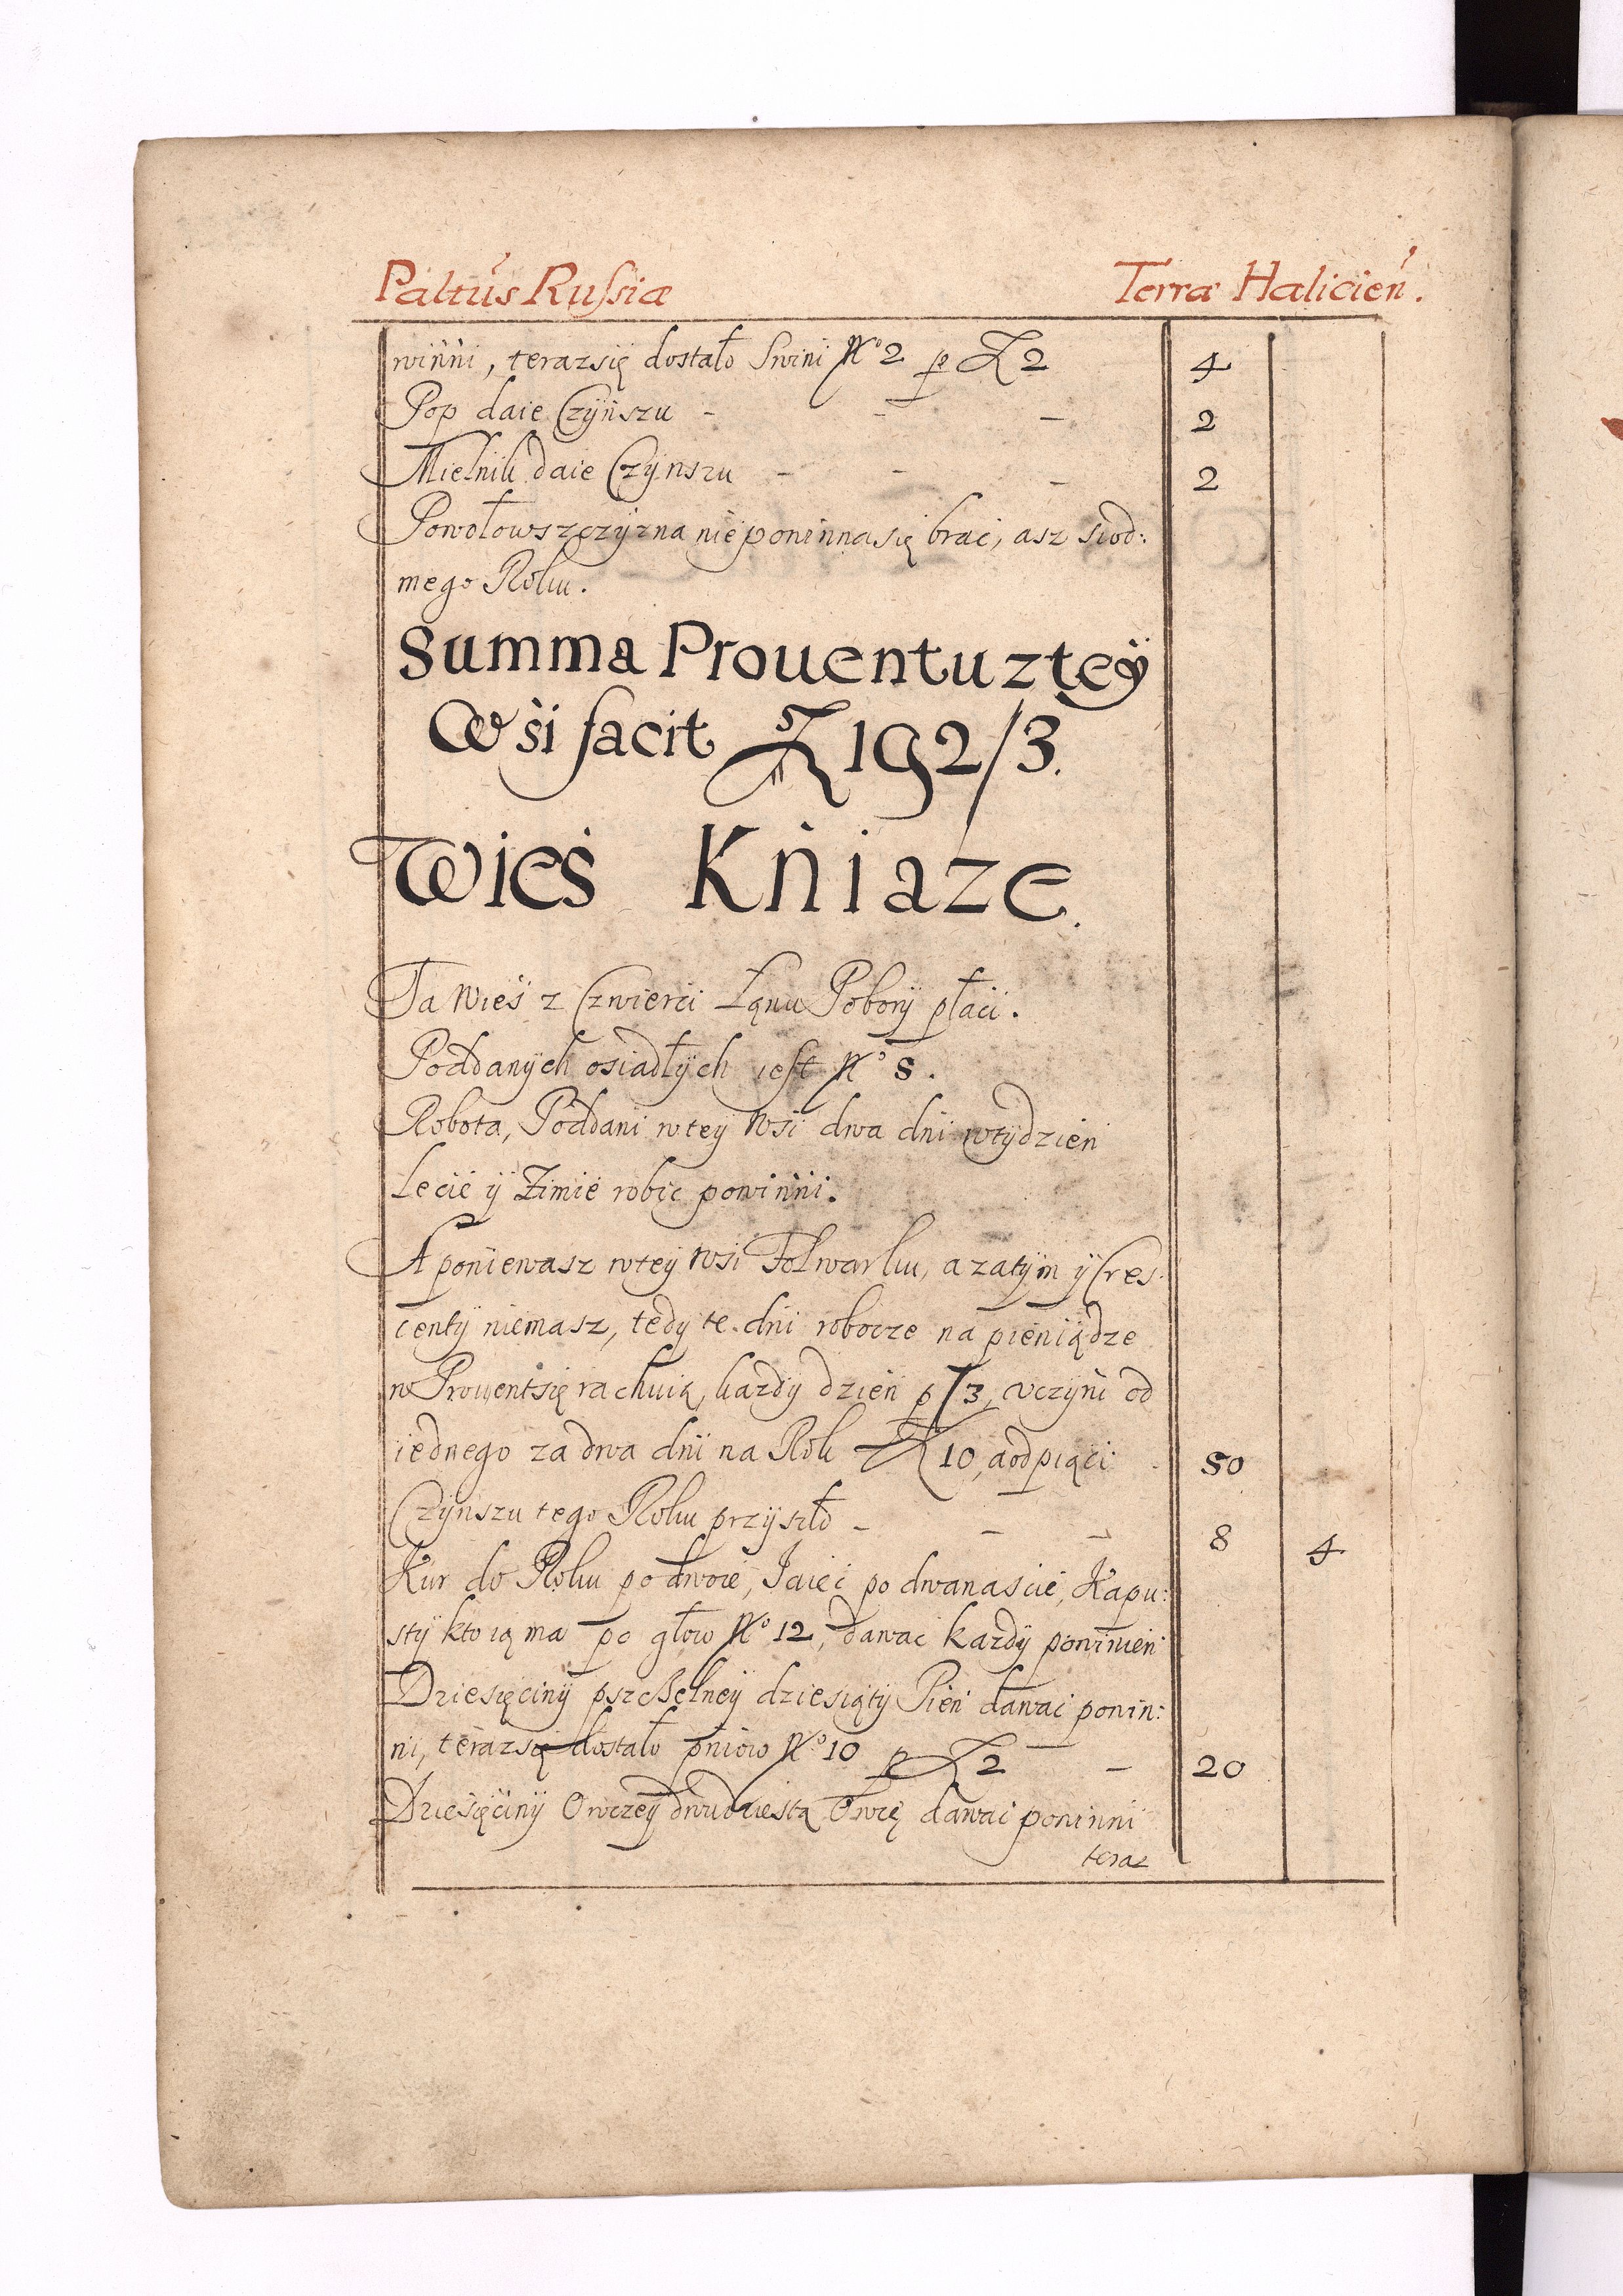 Paltus Russiæ Terræ Halicien.
winni, teraz się dostało Swini No 2 p Zł 2 4
Pop daie Czynszu - - - 2
Mielnik daie Czynszu - - - 2
Powołowszczyzna nie powinna się brać, asz siod:
mego Roku.
Summa Prouentu z tey
Wsi facit Zł 192/3.
Wieś Kniaze.
Ta wieś z Czwierci Łąnu Pobory płaci.
Poddanych osiadłych iest No 5.
Robota, Poddani w tey wsi dwa dni w tydzień
Lecie y Zimie robić powinni.
A poniewasz w tey wsi Folwarku, a zatym y Cres-
centy niemasz, tedy te dni robocze na pieniądze
w Prouent się rachuią, każdy dzień p /3, vczyni od
iednego za dwa dni na Rok Zł 10, a od piąci 50
Czynszu tego Roku przyszło - - - 8 4
Kur do Roku po dwoie, Iaiec po dwanascie, Kapu:
sty kto ią ma po głow No 12, dawac każdy powinien
Dziesięciny pszczelney dziesiąty Pień dawać powin:
ni, teraz się dostało pniow No 10 p Zł 2 - 20
Dziesięciny Owczey dwudziestą Owcę dawać powinni
teraz